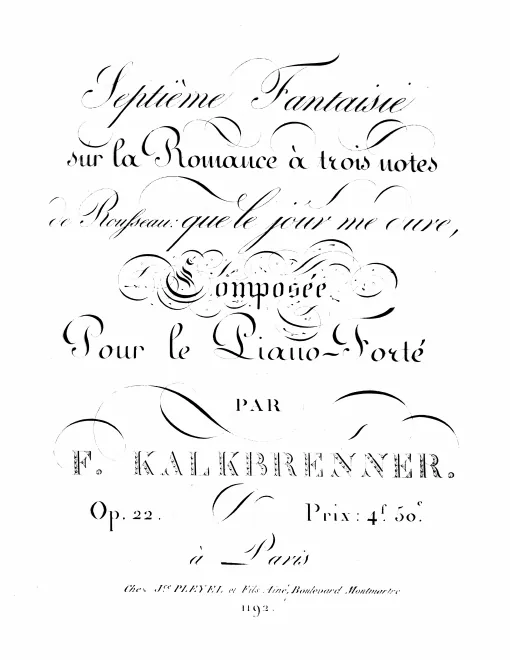 Septième Fantaisie
sur la Romance à trois notes
de Rousseau: que le jour me dure,
Composée
Pour le Piano-Forté
PAR
F. KALKBRENNER.
Op. 22. Prix: 4f. 50c.
à Paris
Chez Jce PLEYEL et Fils Ainé, Boulevard Montmartre
1192.